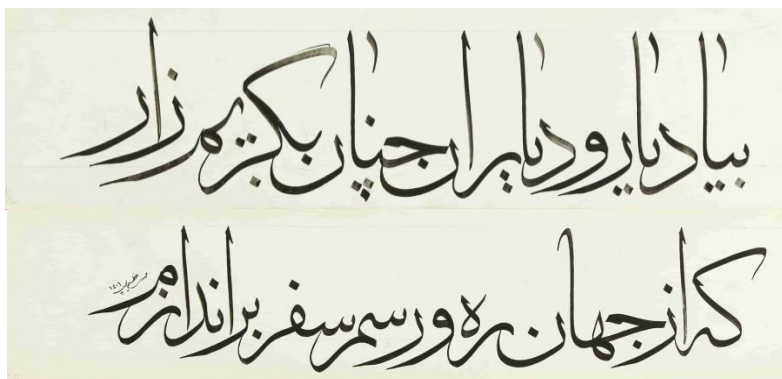 بیاد یار و دیار ان چنان بگریم زار
که از جهان ره و رسم سفر براندازم